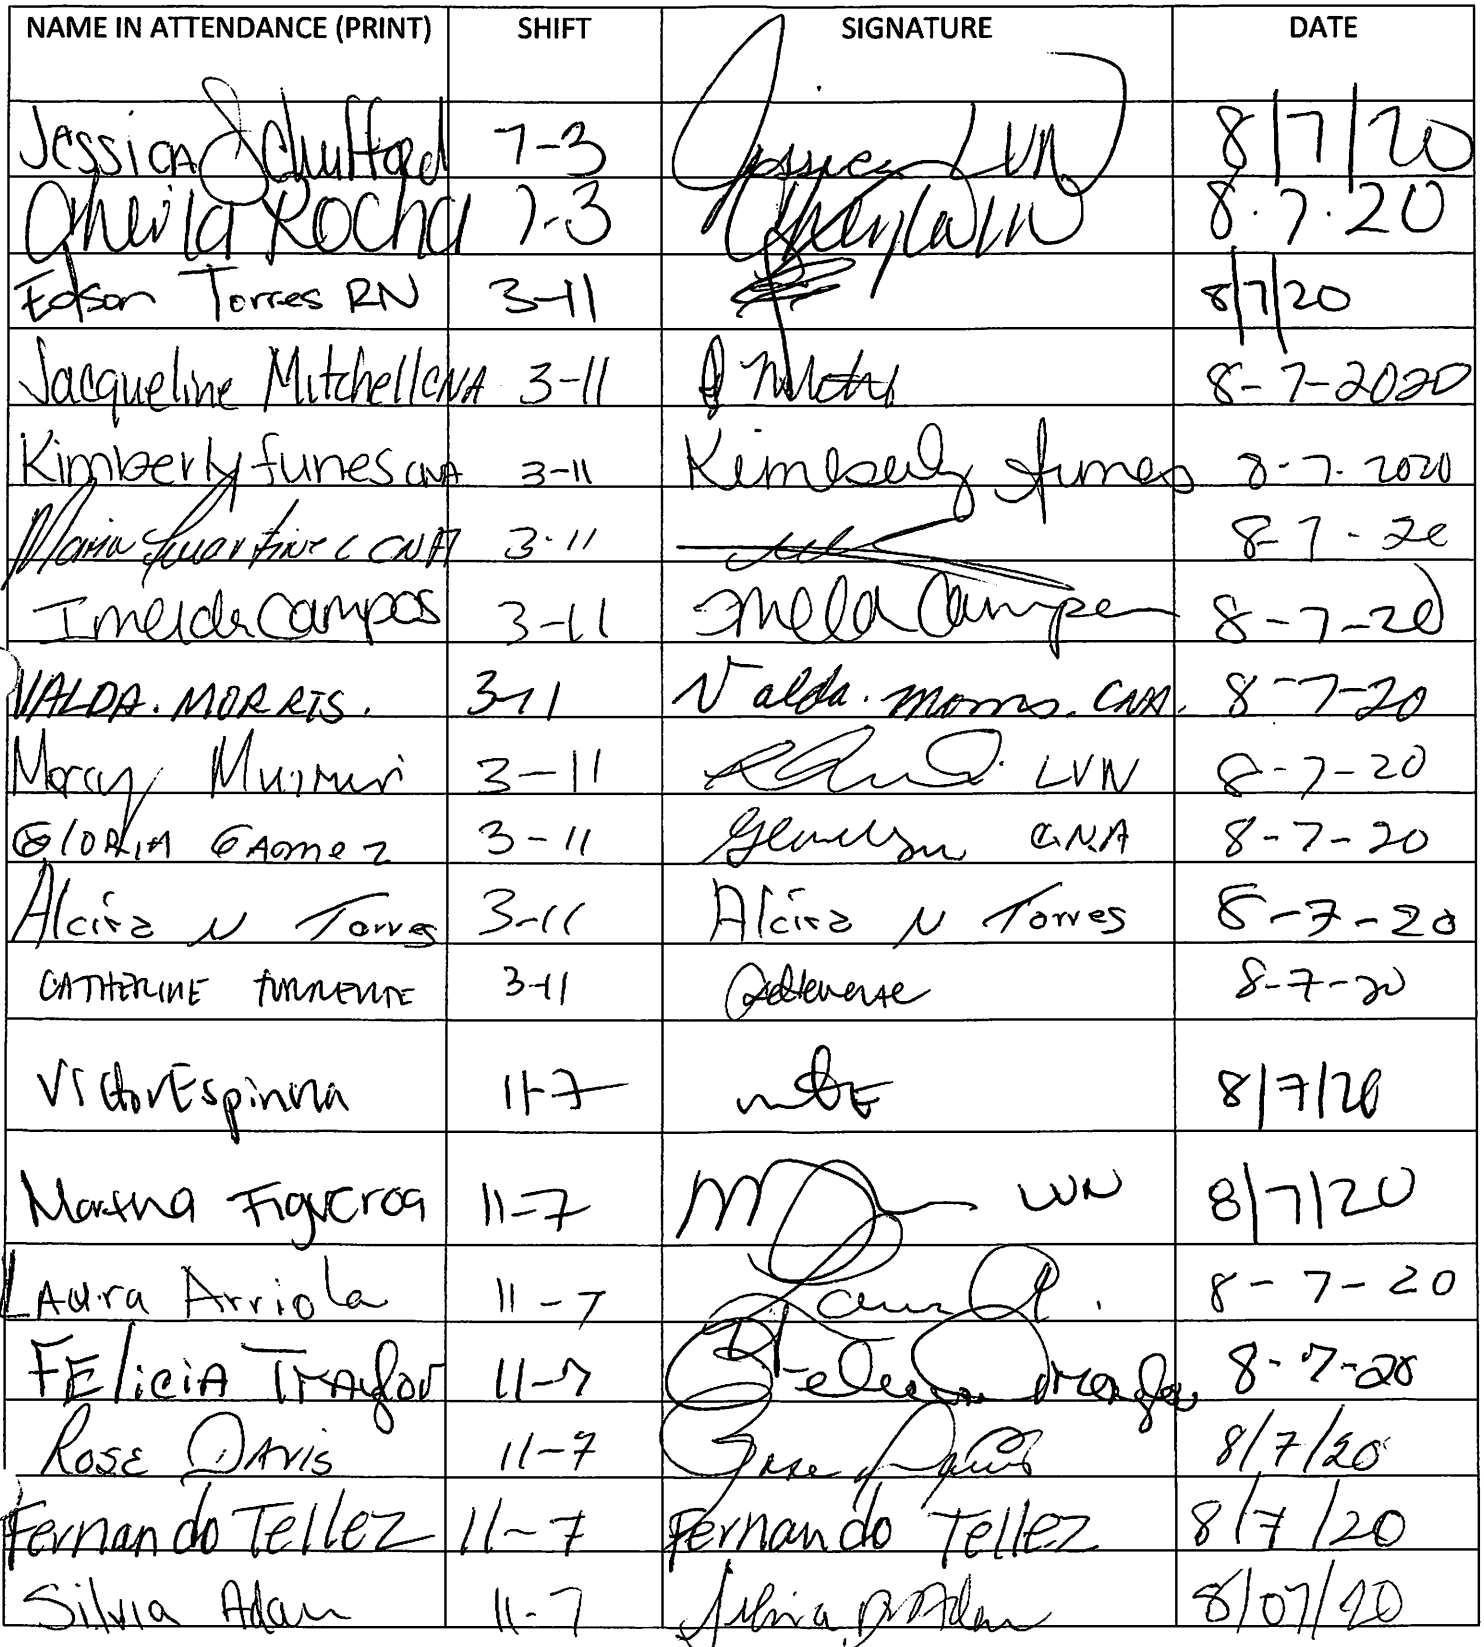 NAME IN ATTENDANCE (PRINT) SHIFT SIGNATURE DATE
Jessica 7-3 Jessica LVN 8/7/20
Rocha 7-3 8.7.20
Edson Torres RN 3-11 8/7/20
Jacqueline Mitchell CNA 3-11 8-7-2020
Kimberly funes CNA 3-11 Kimberly funes 8-7-2020
Maria CNA 3-11 8-7-20
Imelda Campos 3-11 Imelda Campos 8-7-20
VALDA. MORRIS. 3-11 Valda. Morris. CNA. 8-7-20
3-11 LVN 8-7-20
GlORIA GAmez 3-11 C.N.A 8-7-20
Alcira N Torres 3-11 Alcira N Torres 8-7-20
CATHERINE 3-11 8-7-20
Victor Espinoza 11-7 8/7/20
Martha Figueroa 11-7 LVN 8/7/20
LAura Arriola 11-7 Laura A. 8-7-20
FEliciA TrAylor 11-7 Felicia Traylor 8-7-20
Rose DAvis 11-7 Rose Davis 8/7/20
Fernando TellEZ 11-7 Fernando TellEZ 8/7/20
Silvia Adan 11-7 Silvia Adan 8/07/20